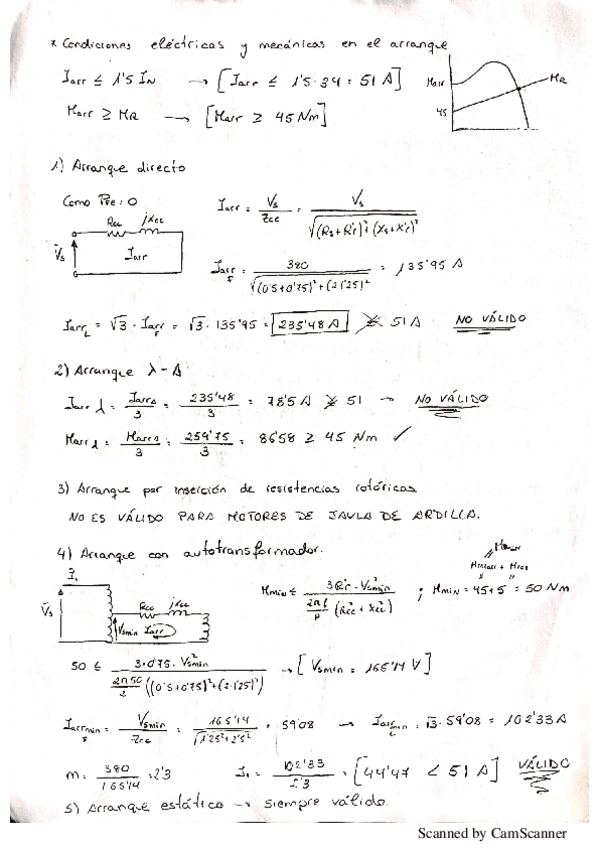 * Condiciones eléctricas y mecánicas en el arranque
Iarr ≤ 1'5 IN → [Iarr ≤ 1'5·34 = 51 A]
Marr ≥ MR → [Marr ≥ 45 Nm]
Marr
45
MR
1) Arranque directo
Como PFe = 0
Rcc jXcc
Vs
Iarr
Iarr = Vs / Zcc = Vs / √((Rs+R'r)²+(Xs+X'r)²)
IarrF = 380 / √((0'5+0'75)²+(2·1'25)²) = 135'95 A
IarrL = √3 · IarrF = √3 · 135'95 = 235'48 A ≰ 51 A NO VÁLIDO
2) Arranque λ - Δ
Iarr λ = IarrΔ / 3 = 235'48 / 3 = 78'5 A ≰ 51 → NO VÁLIDO
Marr λ = MarrΔ / 3 = 259'75 / 3 = 86'58 ≥ 45 Nm ✓
3) Arranque por inserción de resistencias rotóricas
NO ES VÁLIDO PARA MOTORES DE JAULA DE ARDILLA.
4) Arranque con autotransformador.
I1
Vs
Rcc jXcc
Vsmin Iarr
Mmin ≤ 3R'r · Vsmin² / (2πf/p (Rcc² + Xcc²)) ; Mmin = 45+5 = 50 Nm
50 ≤ 3·0'75·Vsmin² / (2π50/2 ((0'5+0'75)²+(2·1'25)²)) → [Vsmin = 165'14 V]
IarrminF = Vsmin / Zcc = 165'14 / √(1'25²+2'5²) = 59'08 → IarrL = √3·59'08 = 102'33 A
m = 380 / 165'14 = 2'3 I1 = 102'33 / 2'3 = [44'47 < 51 A] VÁLIDO
5) Arranque estático → siempre válido.
Scanned by CamScanner